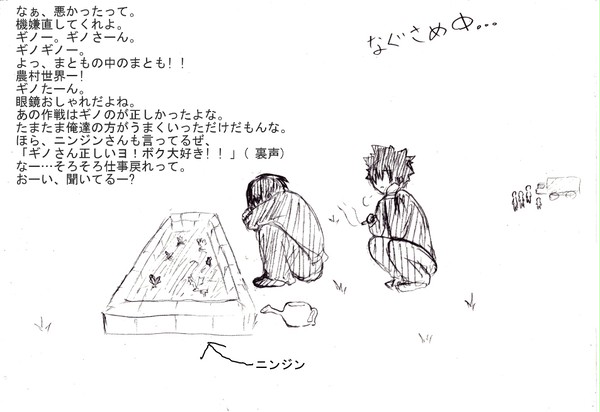 なぁ、悪かったって。
機嫌直してくれよ。
ギノー。ギノさーん。
ギノギノー。
よっ、まともの中のまとも！！
農村世界一！
ギノたーん。
眼鏡おしゃれだよね。
あの作戦はギノのが正しかったよな。
たまたま俺達の方がうまくいっただけだもんな。
ほら、ニンジンさんも言ってるぜ、
「ギノさん正しいヨ！ボク大好き！！」（裏声）
なー…そろそろ仕事戻れって。
おーい、聞いてるー？
なぐさめ中…
ニンジン